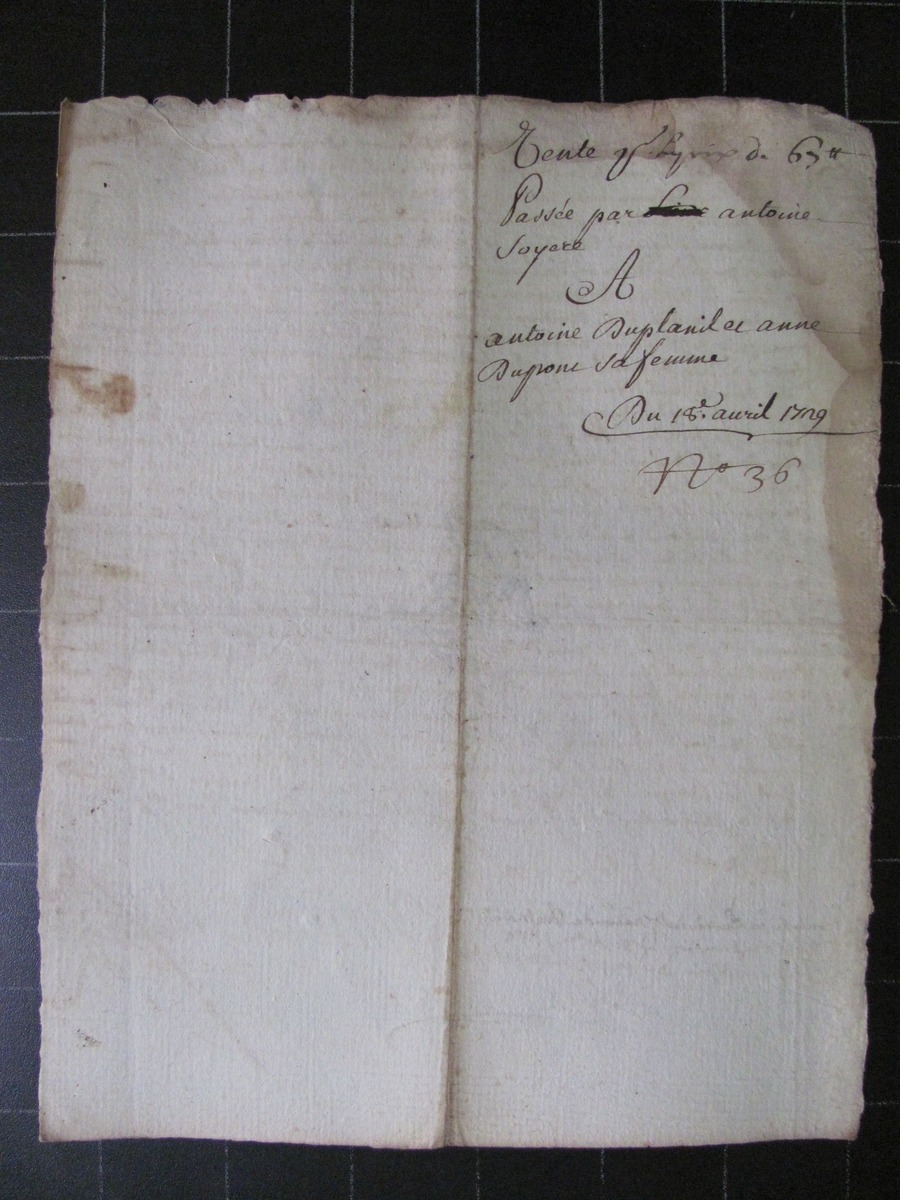 Vente pr le prix de 63 tt
Passée par antoine
Soyere
A
antoine Duplanil et anne
Dupont sa femme
Du 18.e avril 1729
No 36